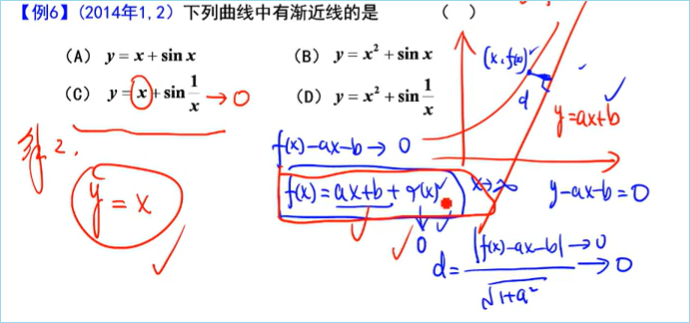 【例6】(2014年1,2) 下列曲线中有渐近线的是 ( )
(A) y = x + sin x (B) y = x² + sin x
(C) y = x + sin 1/x → 0 (D) y = x² + sin 1/x
(x, f(x))
d
y = ax + b
解2.
f(x) - ax - b → 0
y = x
f(x) = ax + b + α(x) x → ∞
y - ax - b = 0
0
d = |f(x) - ax - b| → 0 / √1 + a² → 0